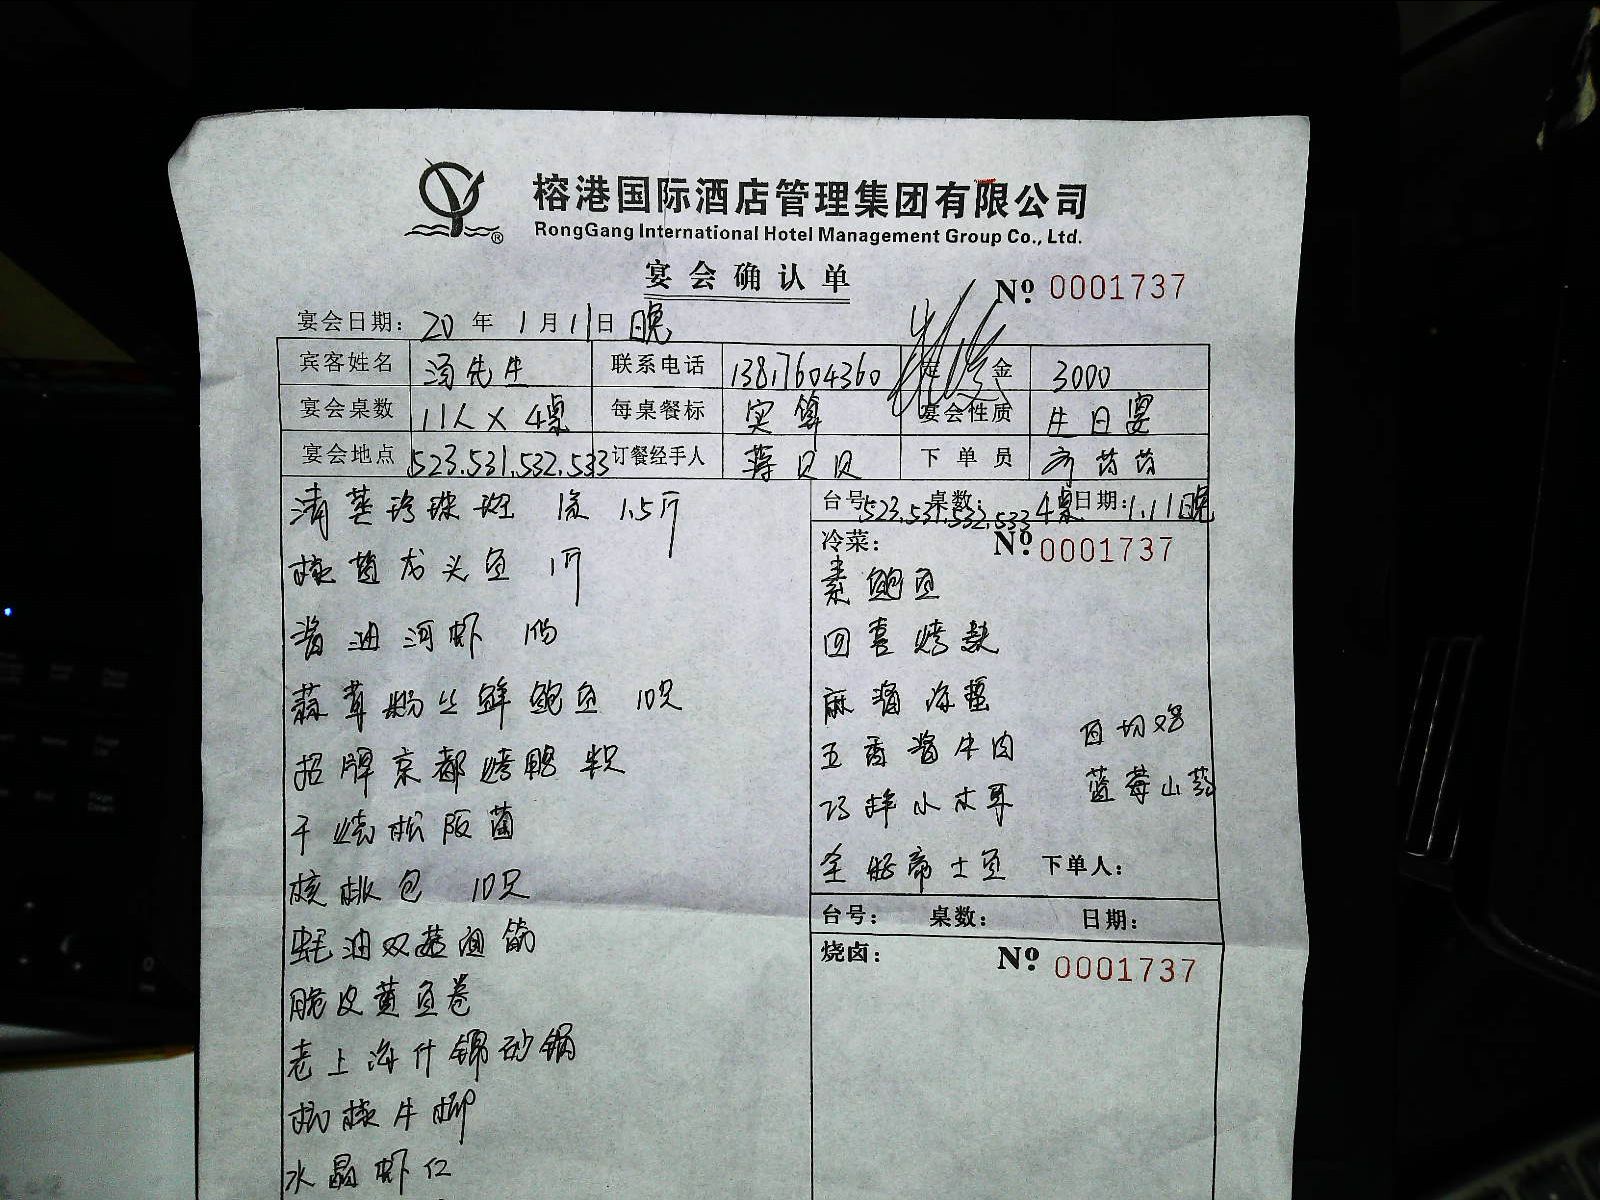 榕港国际酒店管理集团有限公司
RongGang International Hotel Management Group Co., Ltd.
宴会确认单
№ 0001737
宴会日期: 20 年 1 月 11 日 晚
宾客姓名 汤先生 联系电话 13817604360 定金 3000
宴会桌数 11人×4桌 每桌餐标 实算 宴会性质 生日宴
宴会地点 523.531.532.533 订餐经手人 蒋贝贝 下单员
清蒸珍珠斑 1条 1.5斤
椒盐龙头鱼 1斤
酱油河虾 1份
蒜茸粉丝鲜鲍鱼 10只
招牌京都烤鸭 半只
干烧松阪菌
核桃包 10只
蚝油双菇面筋
脆皮黄鱼卷
老上海什锦砂锅
杭椒牛柳
水晶虾仁
台号: 523.531.532.533 桌数: 4桌 日期: 1.11晚
冷菜: № 0001737
素鲍鱼
四喜烤麸
麻酱海蜇
五香酱牛肉
白切鸡
巧拌小木耳
蓝莓山药
帝士鱼
下单人:
台号: 桌数: 日期:
烧卤: № 0001737